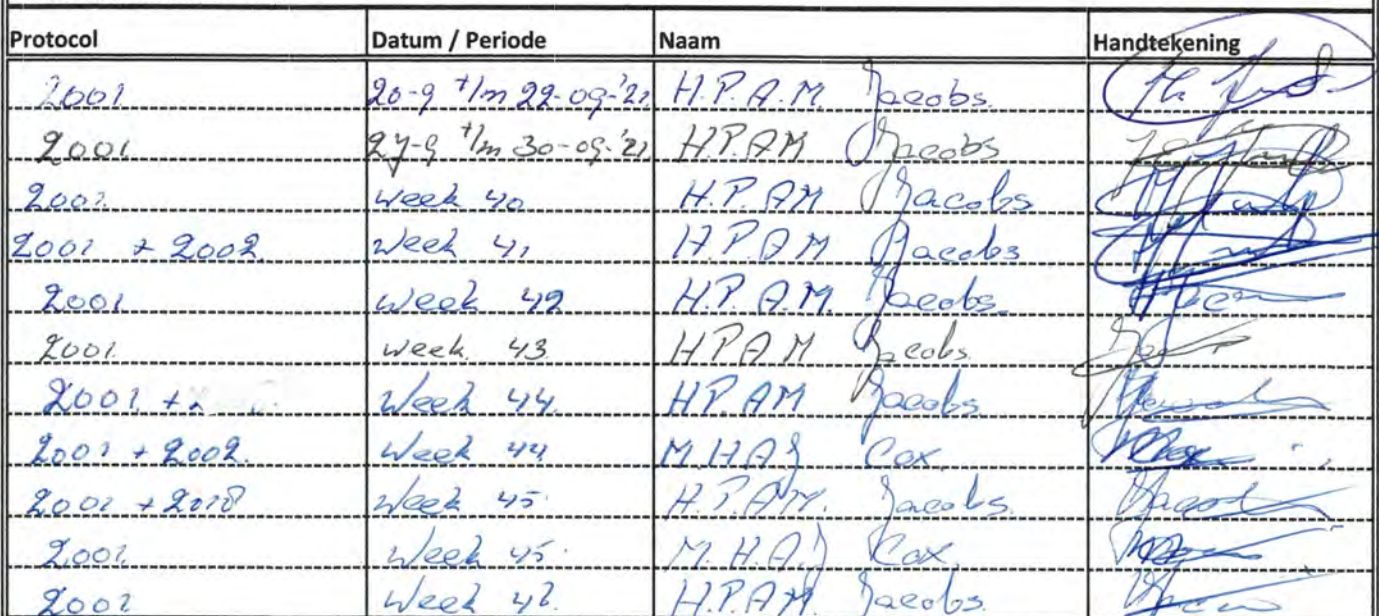 Protocol Datum / Periode Naam Handtekening
2001 20-9 t/m 22-09-'21 H.P.A.M Jacobs.
2001 27-9 t/m 30-09-'21 H.P.A.M Jacobs
2001 week 40 H.P.AM Jacobs
2001 + 2002 week 41 H.P.AM Jacobs
2001 week 42 H.P.A.M. Jacobs.
2001 week 43 HPAM Jacobs.
2001 + week 44 HP.AM Jacobs
2001 + 2002. week 44 M.HAJ Cox.
2001 + 2018 week 45 H.P.AM. Jacobs.
2001 week 45. M.H.AJ Cox.
2001 week H.P.AM. Jacobs.